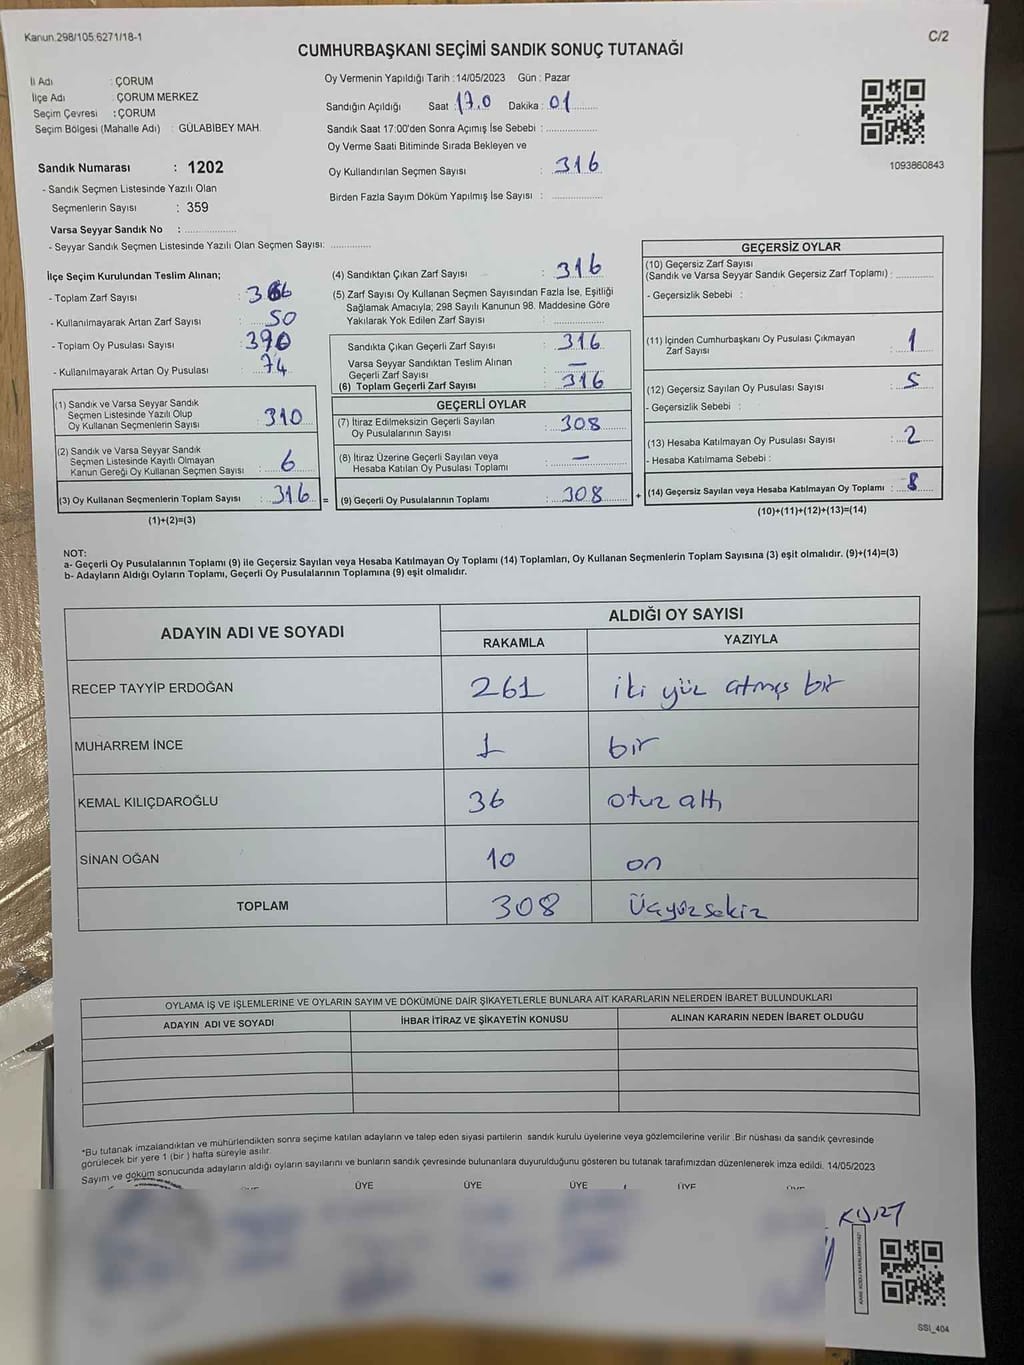 Kanun.298/105.6271/18-1
C/2
CUMHURBAŞKANI SEÇİMİ SANDIK SONUÇ TUTANAĞI
İl Adı : ÇORUM
İlçe Adı : ÇORUM MERKEZ
Seçim Çevresi : ÇORUM
Seçim Bölgesi (Mahalle Adı) : GÜLABİBEY MAH.
Oy Vermenin Yapıldığı Tarih :14/05/2023 Gün : Pazar
Sandığın Açıldığı Saat : 17.0 Dakika : 01
Sandık Saat 17:00'den Sonra Açımış İse Sebebi :
Oy Verme Saati Bitiminde Sırada Bekleyen ve
Oy Kullandırılan Seçmen Sayısı : 316
Birden Fazla Sayım Döküm Yapılmış İse Sayısı :
1093860843
Sandık Numarası : 1202
- Sandık Seçmen Listesinde Yazılı Olan
Seçmenlerin Sayısı : 359
Varsa Seyyar Sandık No :
- Seyyar Sandık Seçmen Listesinde Yazılı Olan Seçmen Sayısı:
İlçe Seçim Kurulundan Teslim Alınan;
- Toplam Zarf Sayısı : 366
- Kullanılmayarak Artan Zarf Sayısı : 50
- Toplam Oy Pusulası Sayısı : 390
- Kullanılmayarak Artan Oy Pusulası : 74
(1) Sandık ve Varsa Seyyar Sandık
Seçmen Listesinde Yazılı Olup
Oy Kullanan Seçmenlerin Sayısı : 310
(2) Sandık ve Varsa Seyyar Sandık
Seçmen Listesinde Kayıtlı Olmayan
Kanun Gereği Oy Kullanan Seçmen Sayısı : 6
(3) Oy Kullanan Seçmenlerin Toplam Sayısı : 316 =
(1)+(2)=(3)
(4) Sandıktan Çıkan Zarf Sayısı : 316
(5) Zarf Sayısı Oy Kullanan Seçmen Sayısından Fazla İse, Eşitliği
Sağlamak Amacıyla; 298 Sayılı Kanunun 98. Maddesine Göre
Yakılarak Yok Edilen Zarf Sayısı :
Sandıkta Çıkan Geçerli Zarf Sayısı : 316
Varsa Seyyar Sandıktan Teslim Alınan
Geçerli Zarf Sayısı : —
(6) Toplam Geçerli Zarf Sayısı : 316
GEÇERLİ OYLAR
(7) İtiraz Edilmeksizin Geçerli Sayılan
Oy Pusulalarının Sayısı : 308
(8) İtiraz Üzerine Geçerli Sayılan veya
Hesaba Katılan Oy Pusulası Toplamı : —
(9) Geçerli Oy Pusulalarının Toplamı : 308 +
GEÇERSİZ OYLAR
(10) Geçersiz Zarf Sayısı
(Sandık ve Varsa Seyyar Sandık Geçersiz Zarf Toplamı) :
- Geçersizlik Sebebi :
(11) İçinden Cumhurbaşkanı Oy Pusulası Çıkmayan
Zarf Sayısı : 1
(12) Geçersiz Sayılan Oy Pusulası Sayısı : 5
- Geçersizlik Sebebi :
(13) Hesaba Katılmayan Oy Pusulası Sayısı : 2
- Hesaba Katılmama Sebebi :
(14) Geçersiz Sayılan veya Hesaba Katılmayan Oy Toplamı : 8
(10)+(11)+(12)+(13)=(14)
NOT:
a- Geçerli Oy Pusulalarının Toplamı (9) ile Geçersiz Sayılan veya Hesaba Katılmayan Oy Toplamı (14) Toplamları, Oy Kullanan Seçmenlerin Toplam Sayısına (3) eşit olmalıdır. (9)+(14)=(3)
b- Adayların Aldığı Oyların Toplamı, Geçerli Oy Pusulalarının Toplamına (9) eşit olmalıdır.
ADAYIN ADI VE SOYADI
ALDIĞI OY SAYISI
RAKAMLA YAZIYLA
RECEP TAYYİP ERDOĞAN 261 iki yüz atmış bir
MUHARREM İNCE 1 bir
KEMAL KILIÇDAROĞLU 36 otuz altı
SİNAN OĞAN 10 on
TOPLAM 308 Üçyüzsekiz
OYLAMA İŞ VE İŞLEMLERİNE VE OYLARIN SAYIM VE DÖKÜMÜNE DAİR ŞİKAYETLERLE BUNLARA AİT KARARLARIN NELERDEN İBARET BULUNDUKLARI
ADAYIN ADI VE SOYADI İHBAR İTİRAZ VE ŞİKAYETİN KONUSU ALINAN KARARIN NEDEN İBARET OLDUĞU
*Bu tutanak imzalandıktan ve mühürlendikten sonra seçime katılan adayların ve talep eden siyasi partilerin sandık kurulu üyelerine veya gözlemcilerine verilir .Bir nüshası da sandık çevresinde
görülecek bir yere 1 (bir ) hafta süreyle asılır.
Sayım ve döküm sonucunda adayların aldığı oyların sayılarını ve bunların sandık çevresinde bulunanlara duyurulduğunu gösteren bu tutanak tarafımızdan düzenlenerek imza edildi. 14/05/2023
ÜYE ÜYE ÜYE ÜYE
KURT
SSI_404